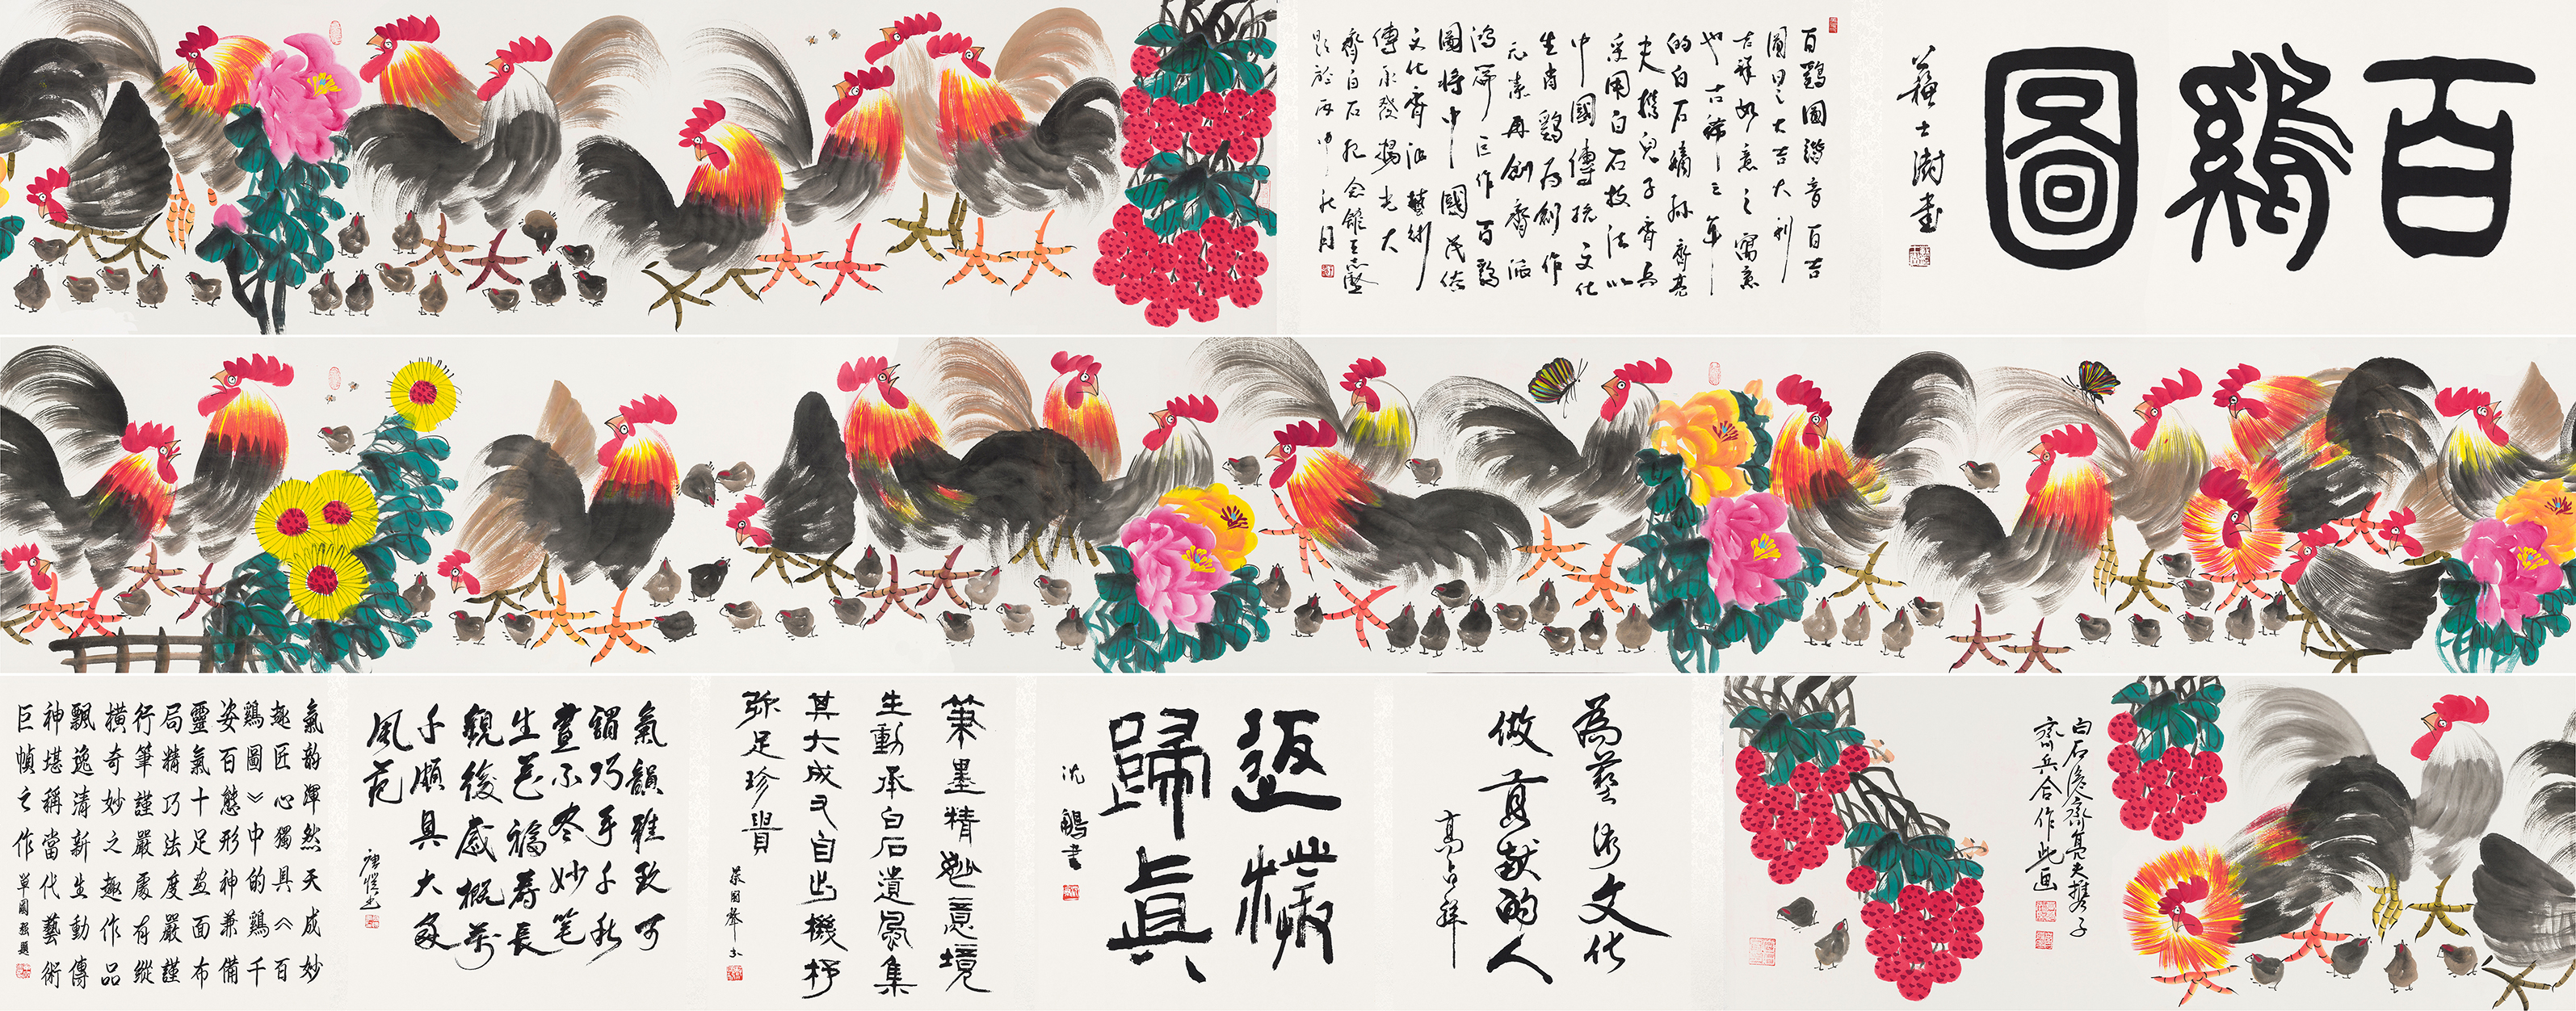 百鷄圖
蘇士澍書
百鷄圖諧音百吉
大吉大利
吉祥如意之寓意
的白石嫡孫齊亮
夫携兒子齊兵
采用白石技法以
中國傳統文化
生肖鷄為創作
元素再創齊派
鴻篇巨作百鷄
圖將中國民俗
文化齊派藝術
傳承發揚光大
齊白石紀念館王志堅
題於丙申秋月
白石後裔齊亮夫携子
齊兵合作此画
為藝術文化
做貢獻的人
高占祥
返樸
歸真
沈鵬書
筆墨精妙意境
生動承白石遺風集
其大成又自出機杼
弥足珍貴
蔡國聲书
氣韻雅致可
謂巧手千秋
畫不尽妙笔
生花福壽長
觀後感概萬
千頗具大家
風范
氣韵渾然天成妙
趣匠心獨具《百
鷄圖》中的鷄千
姿百態形神兼備
靈氣十足画面布
局精巧法度嚴謹
行筆謹嚴處有縱
橫奇妙之趣作品
飄逸清新生動傳
神堪稱當代藝術
巨幀之作 單國強題